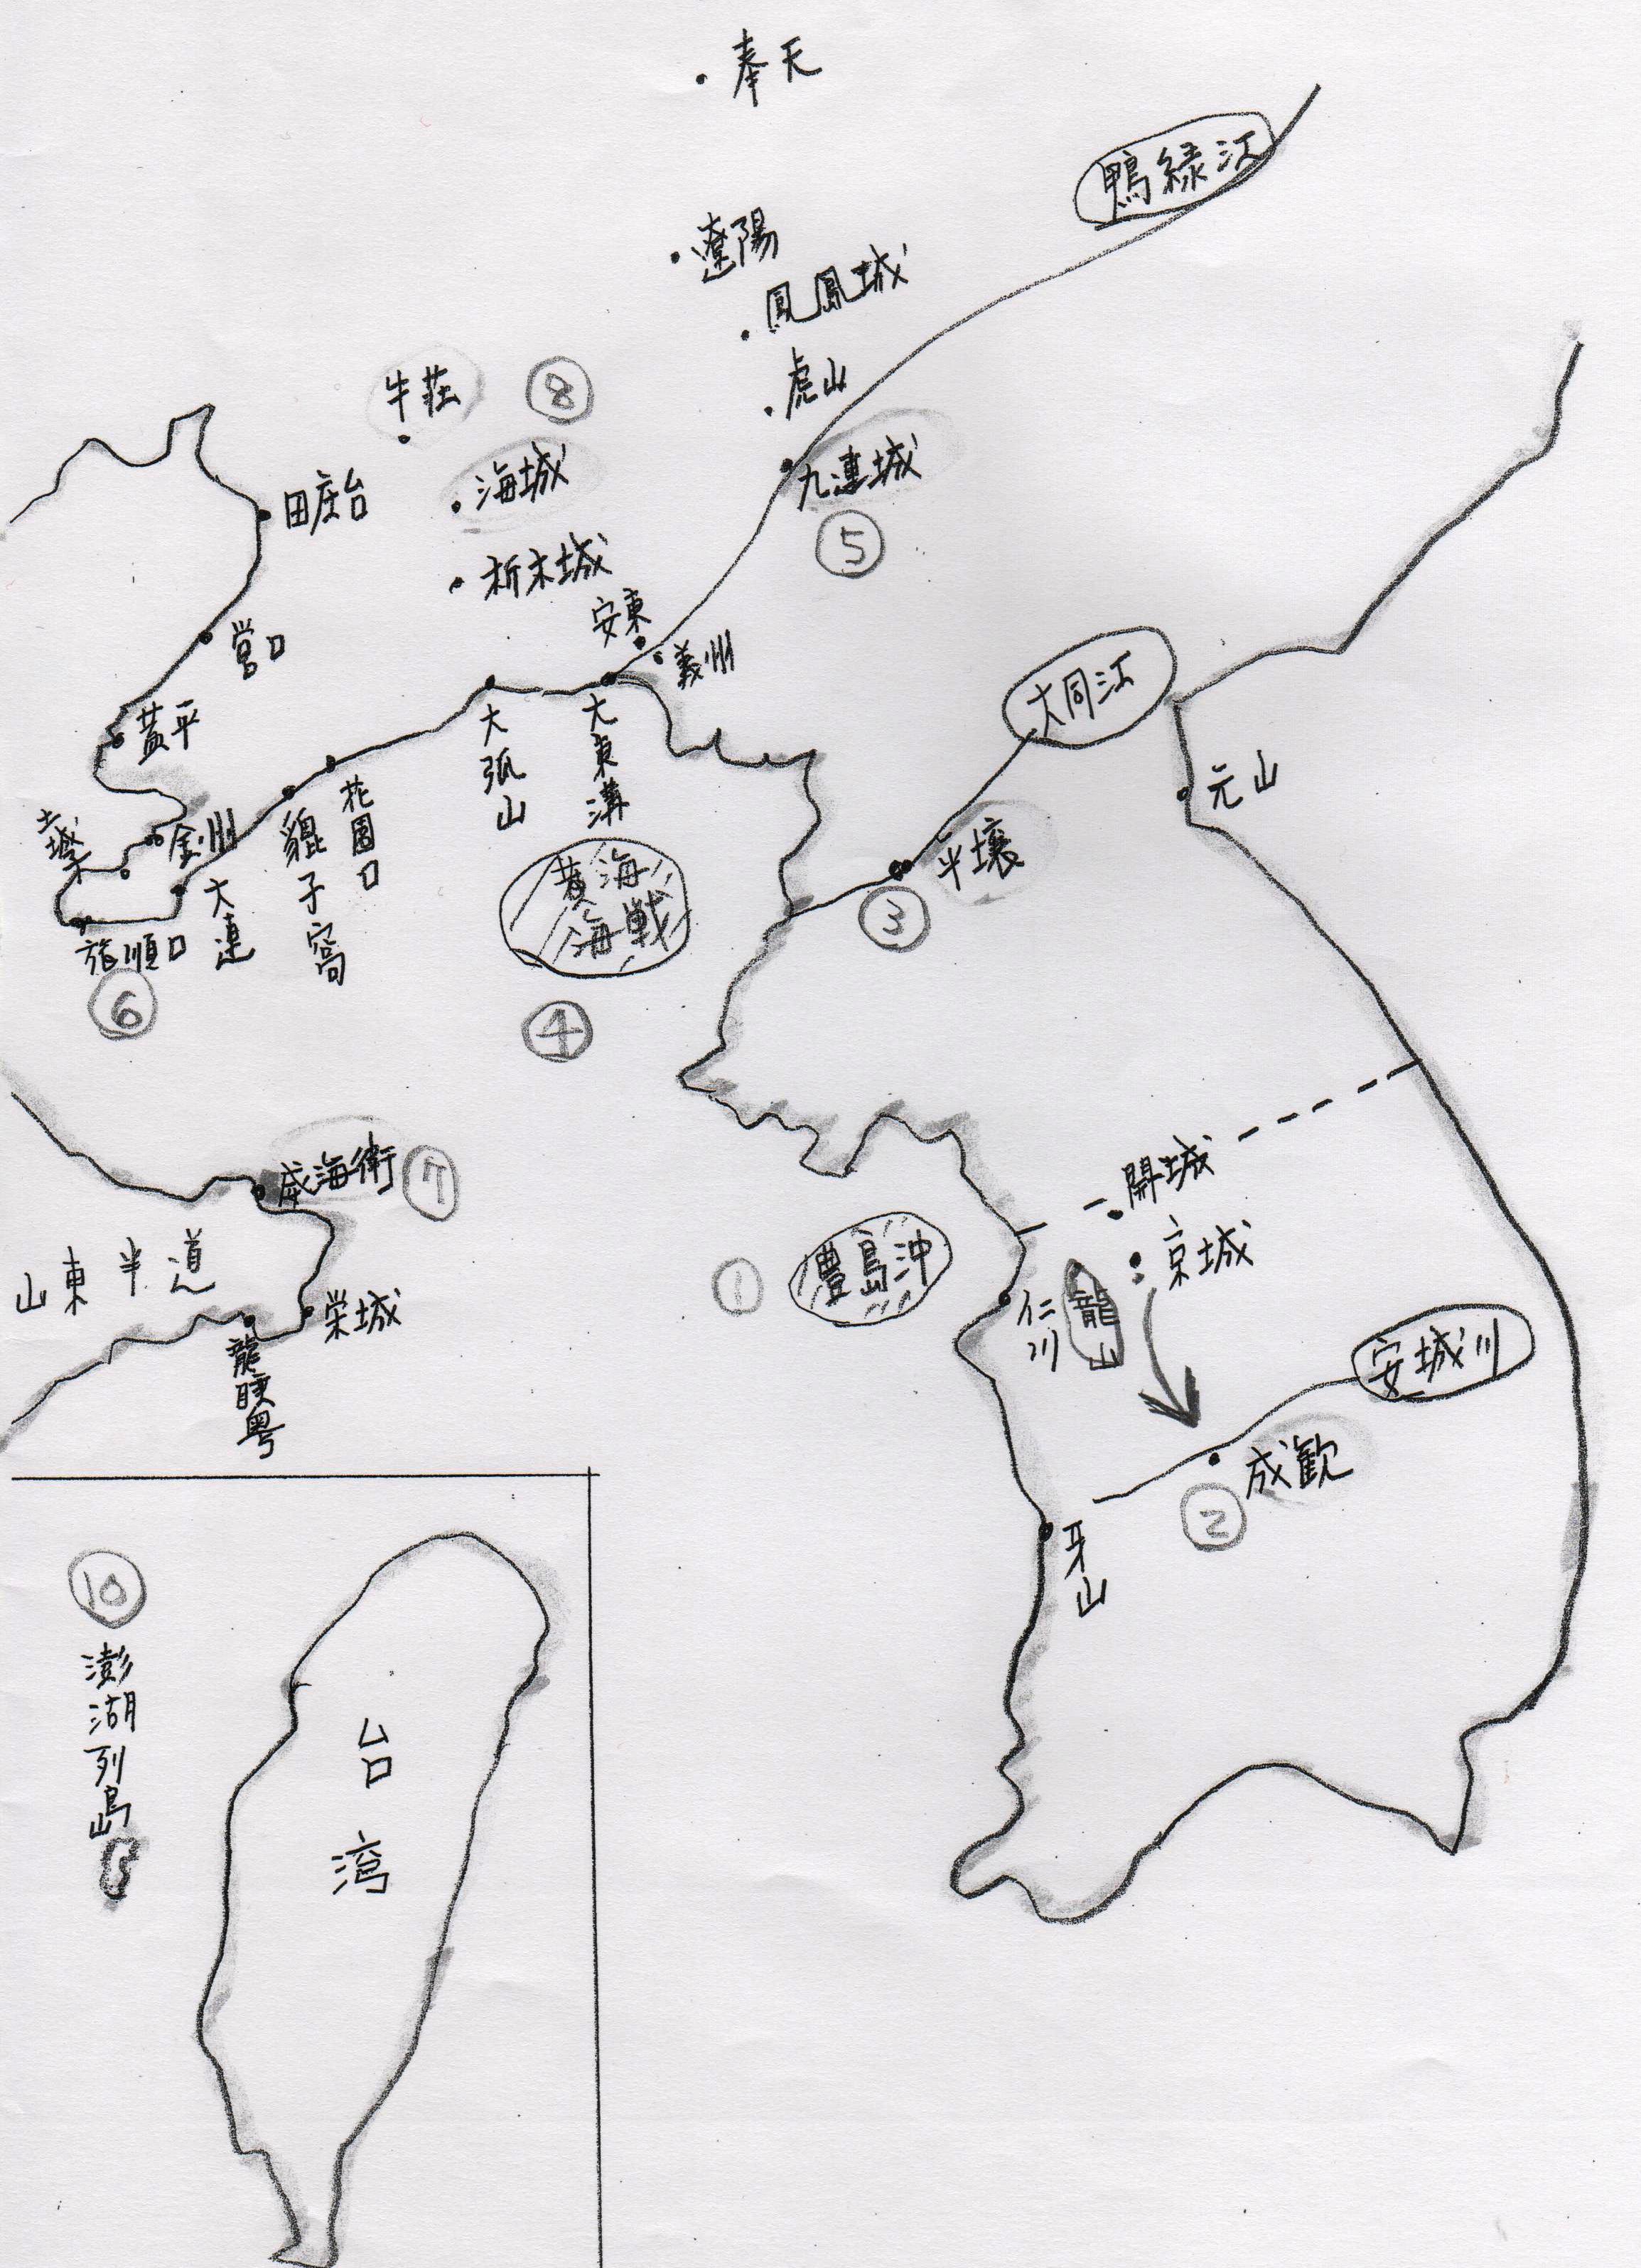 奉天
鴨緑江
遼陽
鳳凰城
虎山
牛荘
⑧
海城
九連城
⑤
田庄台
析木城
安東
義州
営口
大同江
蓋平
大弧山
大東溝
元山
花園口
貔子窩
金州
大連
旅順口
⑥
黄海
海戦
④
平壌
③
威海衛
⑦
山東半道
栄城
開城
京城
①
豊島沖
仁川
龍山
安城川
成歓
②
牙山
⑩
澎湖列島
台湾